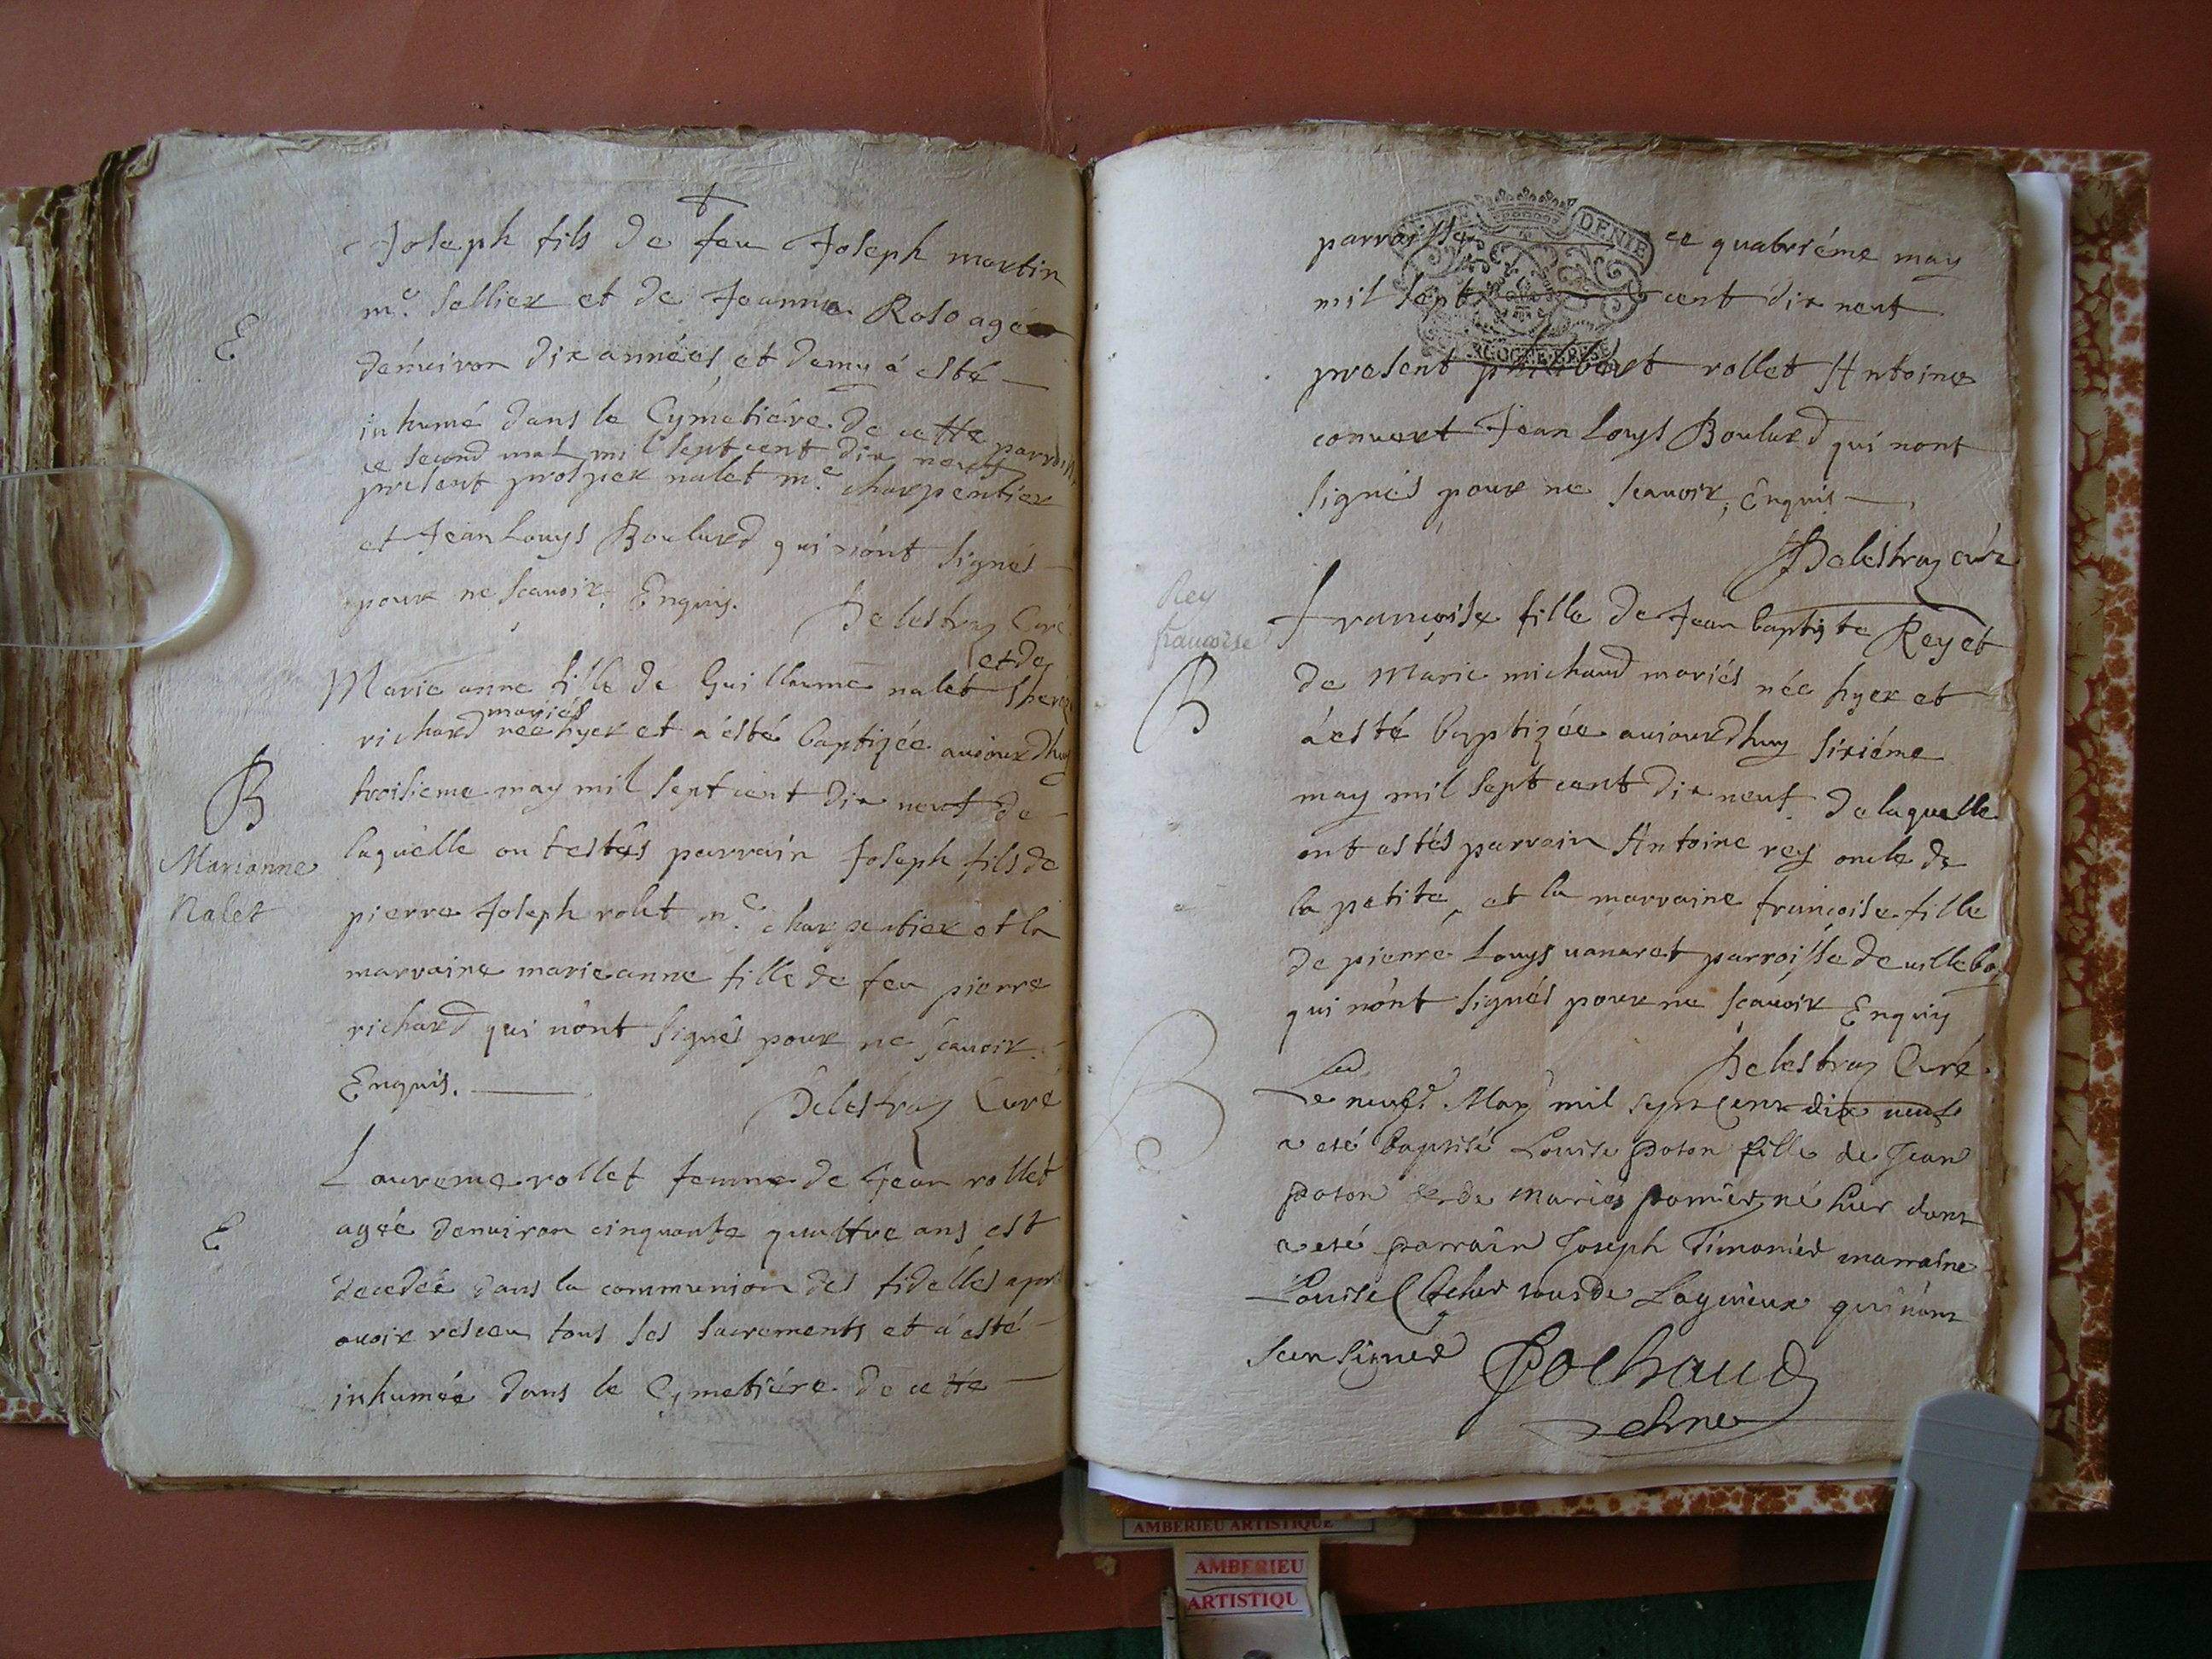 Joseph fils de feu Joseph martin
me. sellier et de Jeanne Roso agé
E
dénuiron dix années et demy á esté
inhumé dans le Cymetiére de cette parroisse
ce second mai mil sept cent dix neuf
present prosper nalet me. charpentier
et Jean Louys Boulurd qui nónt signés
pour ne scauoir, Enquis.
Delestraz Curé
et de
Marie anne fille de Guillaume nalet
mariés
richard née hyer et a ésté baptizée aujourdhuy
B
troisieme may mil sept cent dix neuf de
Marianne
Nalet
laquélle on testés parrain Joseph fils de
pierre Joseph rolet me. charpentier et la
marraine marie anne fille de feu pierre
richard qui nónt signés pour ne scauoir.
Enquis.
Delestraz Curé
Laureme rollet femme de Jean rollet
E
agée denuiron cinquante quattre ans est
decedée dans la communion des fidélles apres
auoir resceu tous ses sacrements et á esté
inhumée dans le Cymetiére de cette
parroisse ce quatriéme may
DENIE
mil sept cent dix neuf
present philibert rollet Antoine
conuert Jean Louys Boulurd qui nont
signés pour ne scauoir, Enquis
Delestraz curé
Rey
françoise
françoise fille de Jean baptiste Rey et
B
de Marie michaud mariés née hyer et
á esté baptizée aujourdhuy sixiéme
may mil sept cent dix neuf de laquelle
ont estés parrain Antoine rey oncle de
la petite, et la marraine françoise fille
de pierre Louys uanaret parroisse de uillebo
qui nónt signés pour ne scauoir Enquis
Delestraz Curé
B
Le neufe. May mil sept cent dix neuf
a eté baptisé Louise poton fille de Jean
poton et de Marie pomier né hier dont
a eté parrain Joseph Timonier marraine
Louise tous de Lagnieux qui nont
sceu signer
Pochaud
AMBERIEU ARTISTIQUE
AMBERIEU
ARTISTIQU